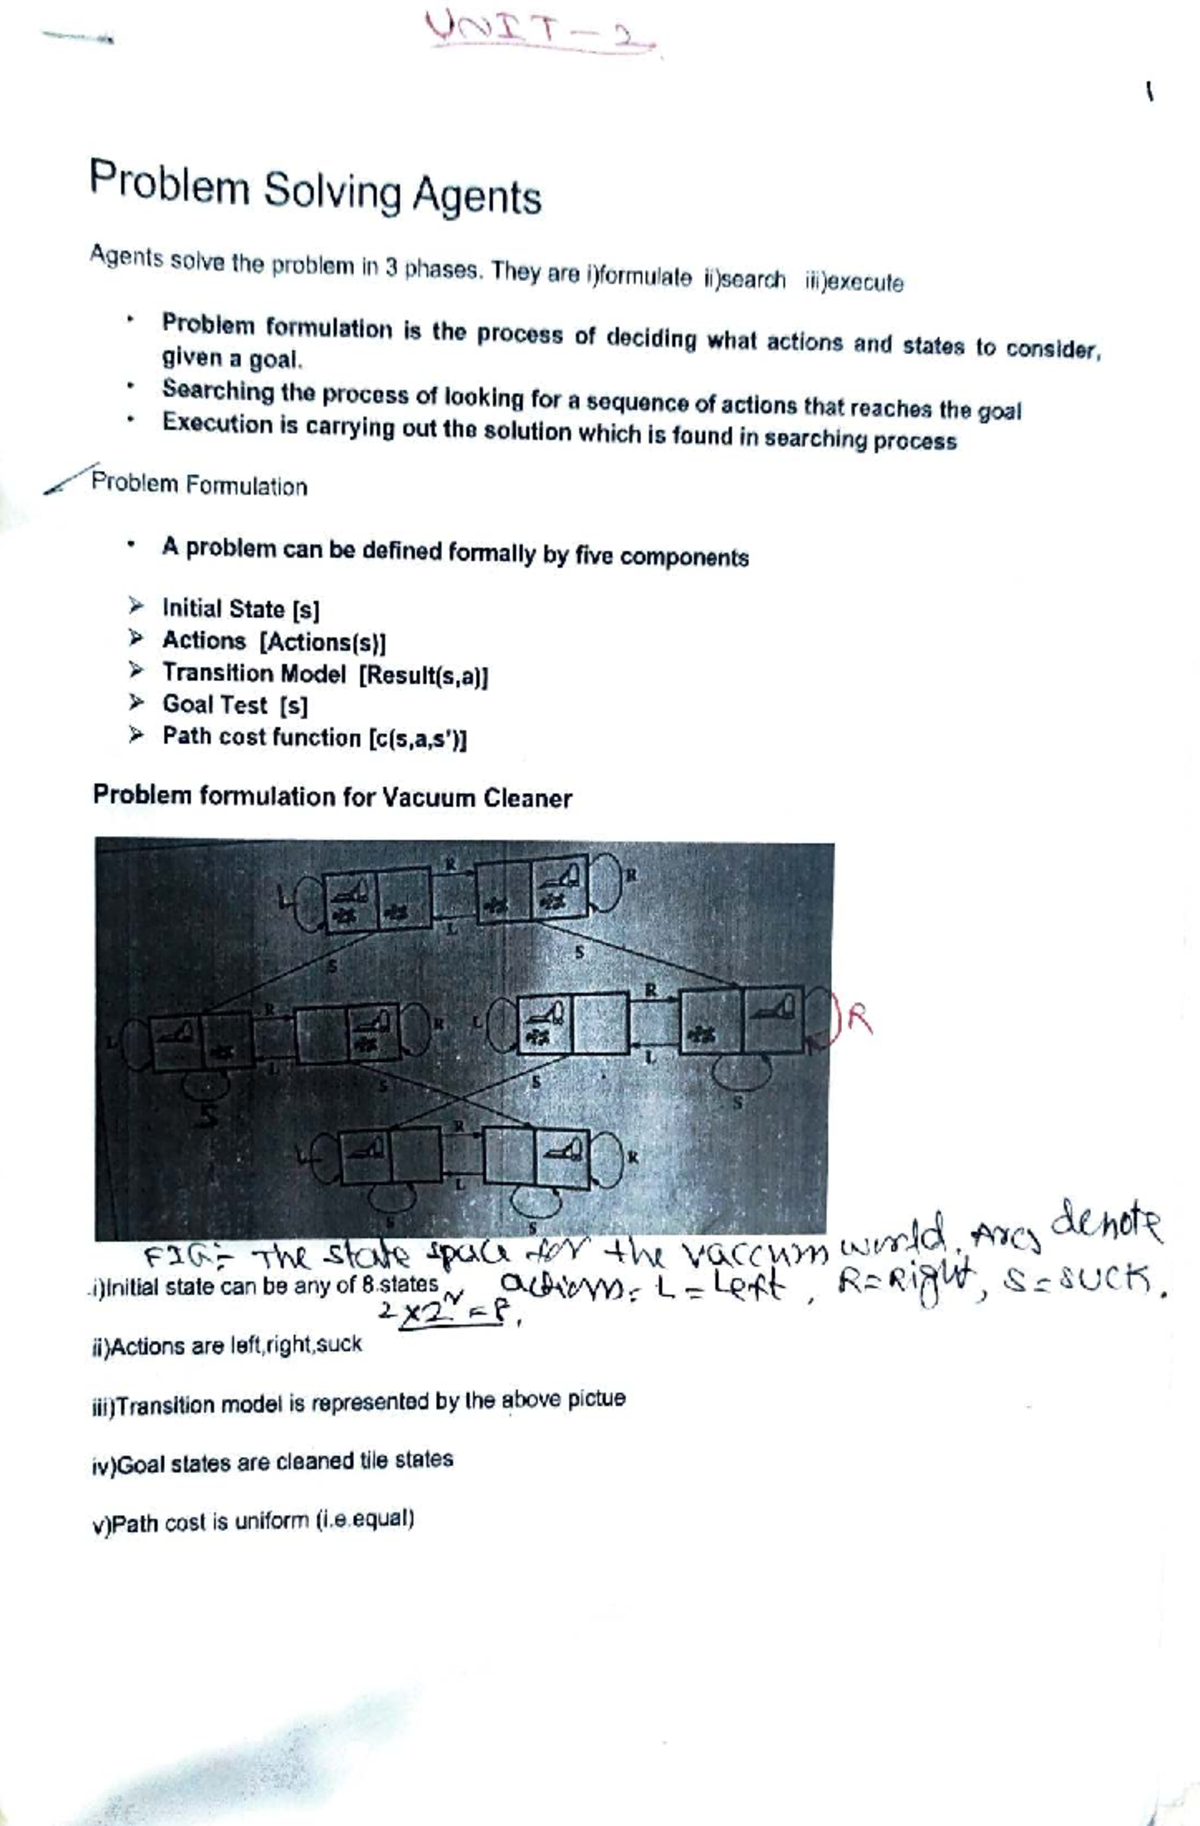 UNIT-2
1
Problem Solving Agents
Agents solve the problem in 3 phases. They are i)formulate ii)search iii)execute
• Problem formulation is the process of deciding what actions and states to consider,
given a goal.
• Searching the process of looking for a sequence of actions that reaches the goal
• Execution is carrying out the solution which is found in searching process
Problem Formulation
• A problem can be defined formally by five components
➢ Initial State [s]
➢ Actions [Actions(s)]
➢ Transition Model [Result(s,a)]
➢ Goal Test [s]
➢ Path cost function [c(s,a,s')]
Problem formulation for Vacuum Cleaner
R
L R
L
S S
R R
L R L R
L L
S S S S
R
L R
L
S S
FIG:- The state space for the vaccum world. Arcs denote
i)Initial state can be any of 8.states actions: L = Left, R = Right, S = SUCK.
2 × 2 = 8.
ii)Actions are left,right,suck
iii)Transition model is represented by the above pictue
iv)Goal states are cleaned tile states
v)Path cost is uniform (i.e.equal)